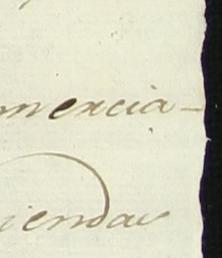 mercia-
iendas